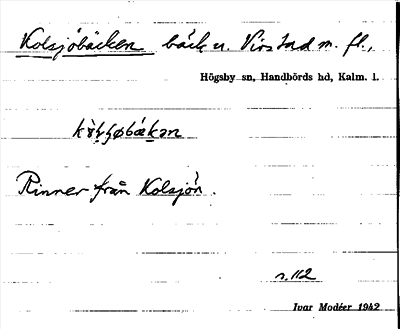 Kolsjöbäcken bäck u. Virstad m. fl.,
Högsby sn, Handbörds hd, Kalm. l.
Rinner från Kolsjön.
s. 112
Ivar Modéer 1942